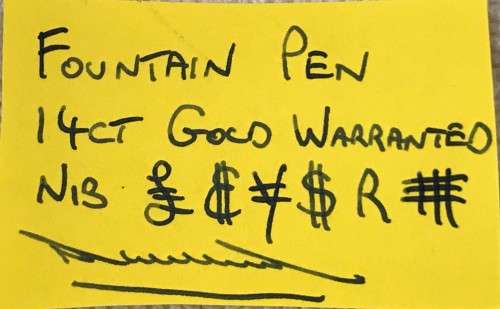 FOUNTAIN PEN
14CT GOLD WARRANTED
NIB £ ₡ ¥ $ R